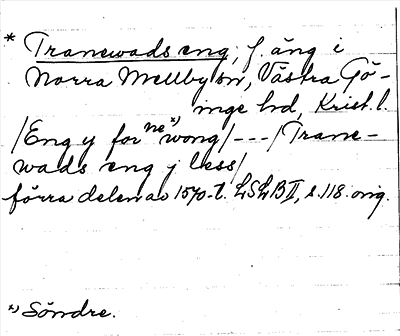 * Tranewads eng, f. äng i
Norra Mellby sn, Västra Gö-
inge hd, Krist. l.
/Eng y for ne x) wong/---/Trane-
wads eng j less/
förra delen av 1570-t. LSLB II, s. 118. orig.
x) Söndre.